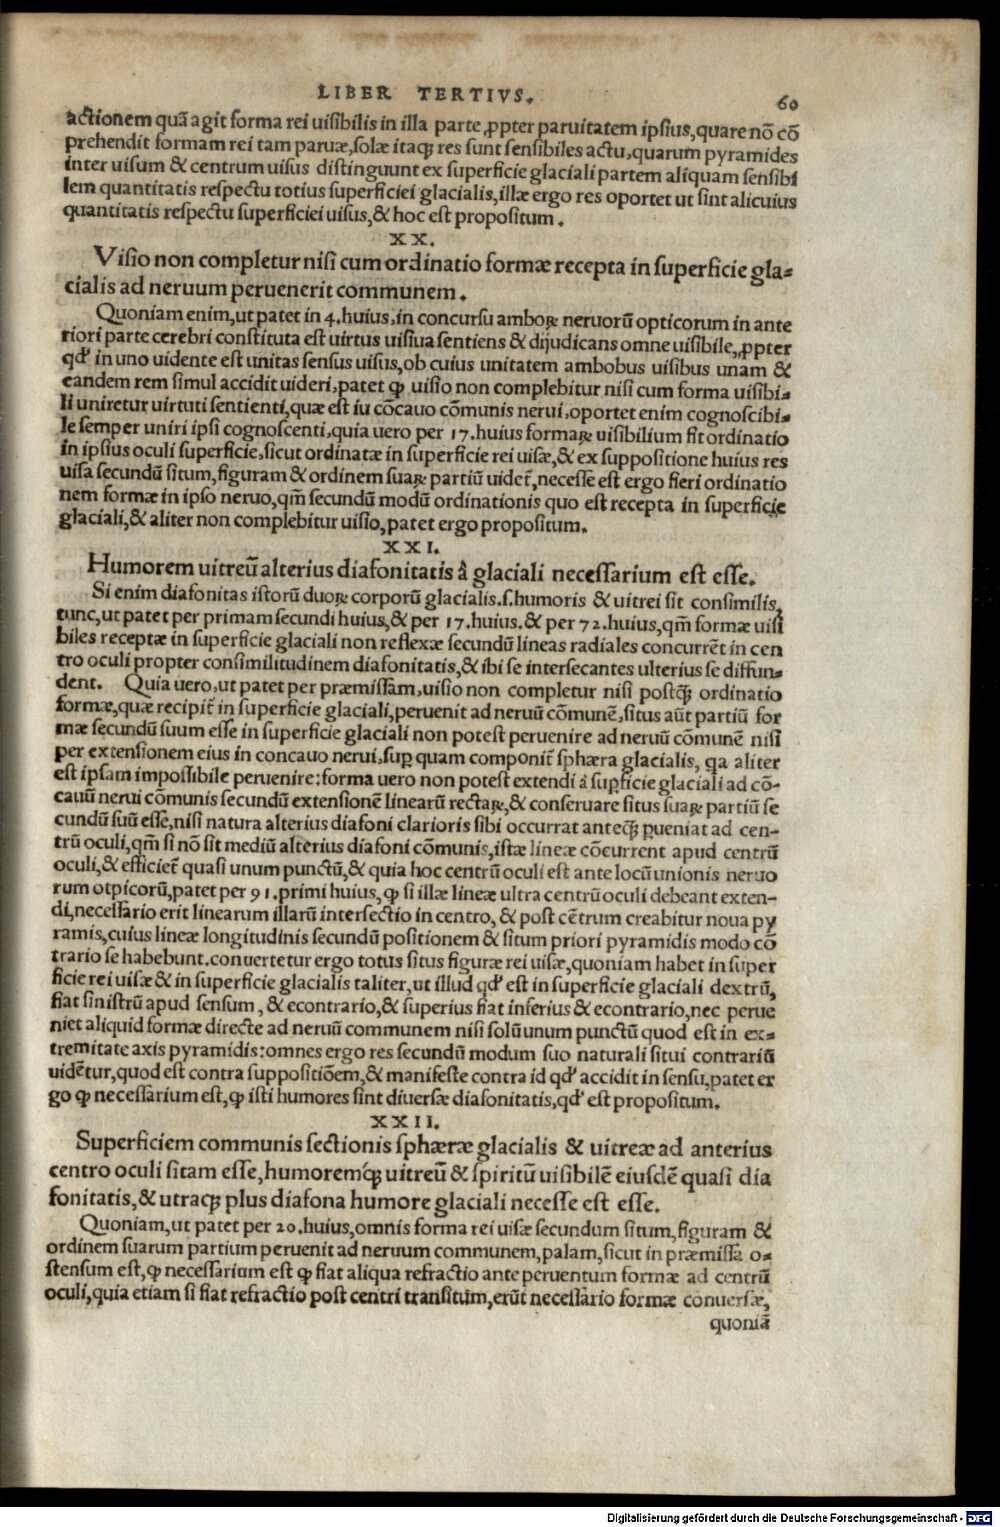 LIBER TERTIVS.
60
actionem quã agit forma rei uiſibilis in illa parte ꝓpter paruitatem ipſius, quare nõ cõ
prehendit formam rei tam paruæ, ſolæ itaqꝫ res ſunt ſenſibiles actu, quarum pyramides
inter uiſum & centrum uiſus diſtinguunt ex ſuperficie glaciali partem aliquam ſenſibi
lem quantitatis reſpectu totius ſuperficiei glacialis, illæ ergo res oportet ut ſint alicuius
quantitatis reſpectu ſuperficiei uiſus, & hoc eſt propoſitum.
XX.
Viſio non completur niſi cum ordinatio formæ recepta in ſuperficie gla⸗
cialis ad neruum peruenerit communem.
Quoniam enim, ut patet in 4. huius, in concurſu amboꝝ neruorũ opticorum in ante
riori parte cerebri conſtituta eſt uirtus uiſiua ſentiens & dijudicans omne uiſibile, ꝓpter
qd' in uno uidente eſt unitas ſenſus uiſus, ob cuius unitatem ambobus uiſibus unam &
eandem rem ſimul accidit uideri, patet ꝙ uiſio non complebitur niſi cum forma uiſibi⸗
li uniretur uirtuti ſentienti, quæ eſt iu cõcauo cõmunis nerui, oportet enim cognoſcibi⸗
le ſemper uniri ipſi cognoſcenti, quia uero per 17. huius formaꝝ uiſibilium fit ordinatio
in ipſius oculi ſuperficie, ſicut ordinatæ in ſuperficie rei uiſæ, & ex ſuppoſitione huius res
uiſa ſecundũ ſitum, figuram & ordinem ſuaꝝ partiũ uidet̃, neceſſe eſt ergo fieri ordinatio
nem formæ in ipſo neruo, qm̃ ſecundũ modũ ordinationis quo eſt recepta in ſuperficie
glaciali, & aliter non complebitur uiſio, patet ergo propoſitum.
XXI.
Humorem uitreũ alterius diafonitatis â glaciali neceſſarium eſt eſſe.
Si enim diafonitas iſtorũ duoꝝ corporũ glacialis. ſ. humoris & uitrei ſit conſimilis,
tunc, ut patet per primam ſecundi huius, & per 17. huius. & per 72. huius, qm̃ formæ uiſi
biles receptæ in ſuperficie glaciali non reflexæ ſecundũ lineas radiales concurrẽt in cen
tro oculi propter conſimilitudinem diafonitatis, & ibi ſe interſecantes ulterius ſe diffun⸗
dent. Quia uero, ut patet per præmiſſam, uiſio non completur niſi poſtqꝫ̃ ordinatio
formæ, quæ recipit̃ in ſuperficie glaciali, peruenit ad neruũ cõmunẽ, ſitus aũt partiũ for
mæ ſecundũ ſuum eſſe in ſuperficie glaciali non poteſt peruenire ad neruũ cõmunẽ niſi
per extenſionem eius in concauo nerui, ſuꝑ quam componit̃ ſphæra glacialis, qa aliter
eſt ipſam impoſſibile peruenire: forma uero non poteſt extendi â ſuꝑficie glaciali ad cõ-
cauũ nerui cõmunis ſecundũ extenſionẽ linearũ rectaꝝ, & conſeruare ſitus ſuaꝝ partiũ ſe
cundũ ſuũ eſſe, niſi natura alterius diafoni clarioris ſibi occurrat anteqꝫ̃ ꝑueniat ad cen-
trũ oculi, qm̃ ſi nõ ſit mediũ alterius diafoni cõmunis, iſtæ lineæ cõcurrent apud centrũ
oculi, & efficiet̃ quaſi unum punctũ, & quia hoc centrũ oculi eſt ante locũ unionis neruo
rum otpicorũ, patet per 91. primi huius, ꝙ ſi illæ lineæ ultra centrũ oculi debeant exten-
di, neceſſario erit linearum illarũ interſectio in centro, & poſt cẽtrum creabitur noua py
ramis, cuius lineæ longitudinis ſecundũ poſitionem & ſitum priori pyramidis modo cõ
trario ſe habebunt. conuertetur ergo totus ſitus figuræ rei uiſæ, quoniam habet in ſuper
ficie rei uiſæ & in ſuperficie glacialis taliter, ut illud qd' eſt in ſuperficie glaciali dextrũ,
fiat ſiniſtrũ apud ſenſum, & econtrario, & ſuperius fiat inferius & econtrario, nec perue
niet aliquid formæ directe ad neruũ communem niſi ſolũ unum punctũ quod eſt in ex⸗
tremitate axis pyramidis: omnes ergo res ſecundũ modum ſuo naturali ſitui contrariũ
uidẽtur, quod eſt contra ſuppoſitiõem, & manifeſte contra id qd' accidit in ſenſu, patet er
go ꝙ neceſſarium eſt, ꝙ iſti humores ſint diuerſæ diafonitatis, qd' eſt propoſitum.
XXII.
Superficiem communis ſectionis ſphæræ glacialis & uitreæ ad anterius
centro oculi ſitam eſſe, humoremq́ꝫ uitreũ & ſpiritũ uiſibilẽ eiuſdẽ quaſi dia
fonitatis, & utraqꝫ plus diafona humore glaciali neceſſe eſt eſſe.
Quoniam, ut patet per 20. huius, omnis forma rei uiſæ ſecundum ſitum, figuram &
ordinem ſuarum partium peruenit ad neruum communem, palam, ſicut in præmiſſa o⸗
ſtenſum eſt, ꝙ neceſſarium eſt ꝙ fiat aliqua refractio ante peruentum formæ ad centrũ
oculi, quia etiam ſi fiat refractio poſt centri tranſitum, erũt neceſſario formæ conuerſæ,
quoniã
Digitalisierung gefördert durch die Deutsche Forschungsgemeinschaft - DFG